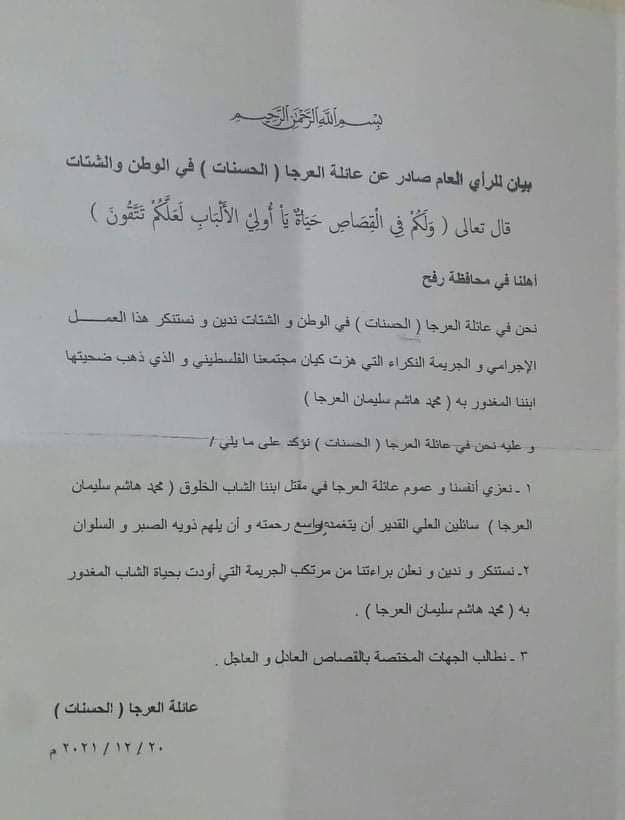 بسم الله الرحمن الرحيم
بيان للرأي العام صادر عن عائلة العرجا ( الحسنات ) في الوطن والشتات
قال تعالى ( وَلَكُمْ فِي الْقِصَاصِ حَيَاةٌ يَاْ أُولِيْ الأَلْبَابِ لَعَلَّكُمْ تَتَّقُونَ )
أهلنا في محافظة رفح
نحن في عائلة العرجا ( الحسنات ) في الوطن و الشتات ندين و نستنكر هذا العمـــــل
الإجرامي و الجريمة النكراء التي هزت كيان مجتمعنا الفلسطيني و الذي ذهب ضحيتها
ابننا المغدور به ( محمد هاشم سليمان العرجا )
و عليه نحن في عائلة العرجا ( الحسنات ) نؤكد على ما يلي /
١ ـ نعزي أنفسنا و عموم عائلة العرجا في مقتل ابننا الشاب الخلوق ( محمد هاشم سليمان
العرجا ) سائلين العلي القدير أن يتغمده بواسع رحمته و أن يلهم ذويه الصبر و السلوان
٢ـ نستنكر و ندين و نعلن براءتنا من مرتكب الجريمة التي أودت بحياة الشاب المغدور
به ( محمد هاشم سليمان العرجا ) .
٣ ـ نطالب الجهات المختصة بالقصاص العادل و العاجل .
عائلة العرجا ( الحسنات )
٢٠ / ١٢ / ٢٠٢١ م